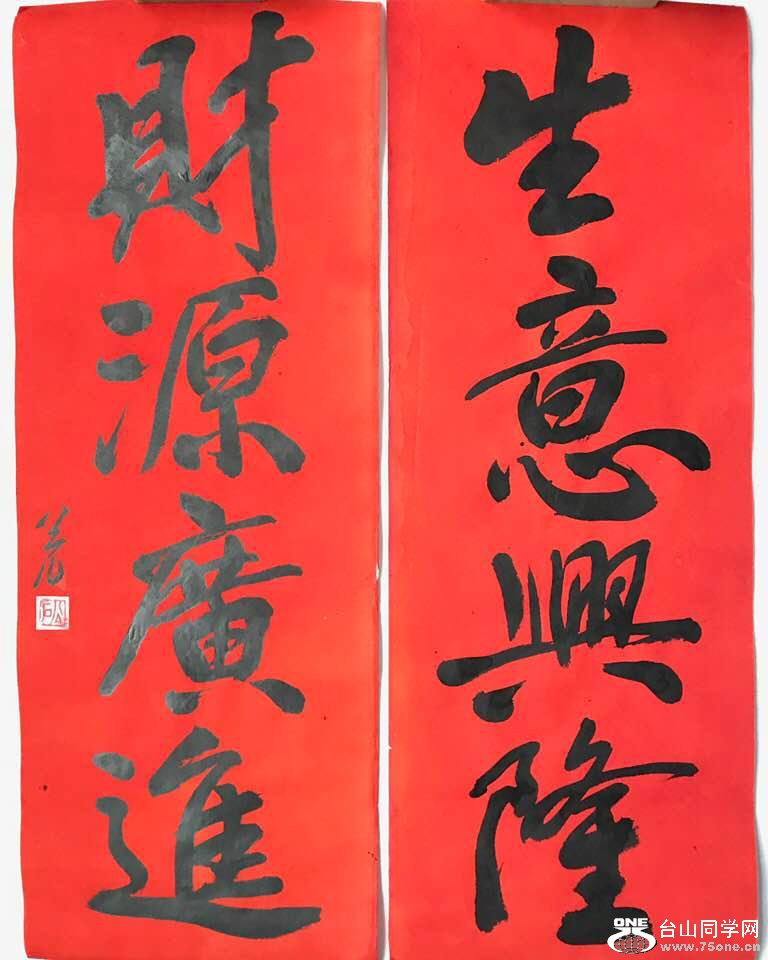 生意興隆
財源廣進
ONE
台山同学网
www.75one.cn